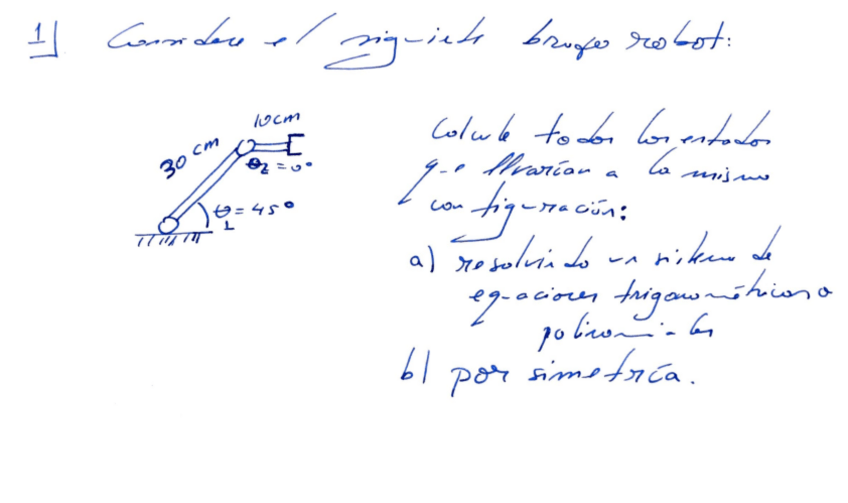 1] Considere el siguiente brazo robot:
10cm
30 cm
θ2 = 0°
θ1 = 45°
Calcule todos los estados
que llevarían a la misma
configuración:
a) resolviendo un sistema de
ecuaciones trigonométricas o
polinomiales
b) por simetría.